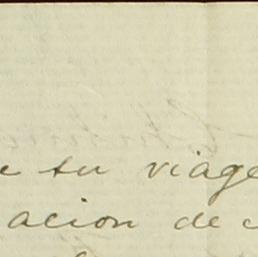 e su viage
acion de